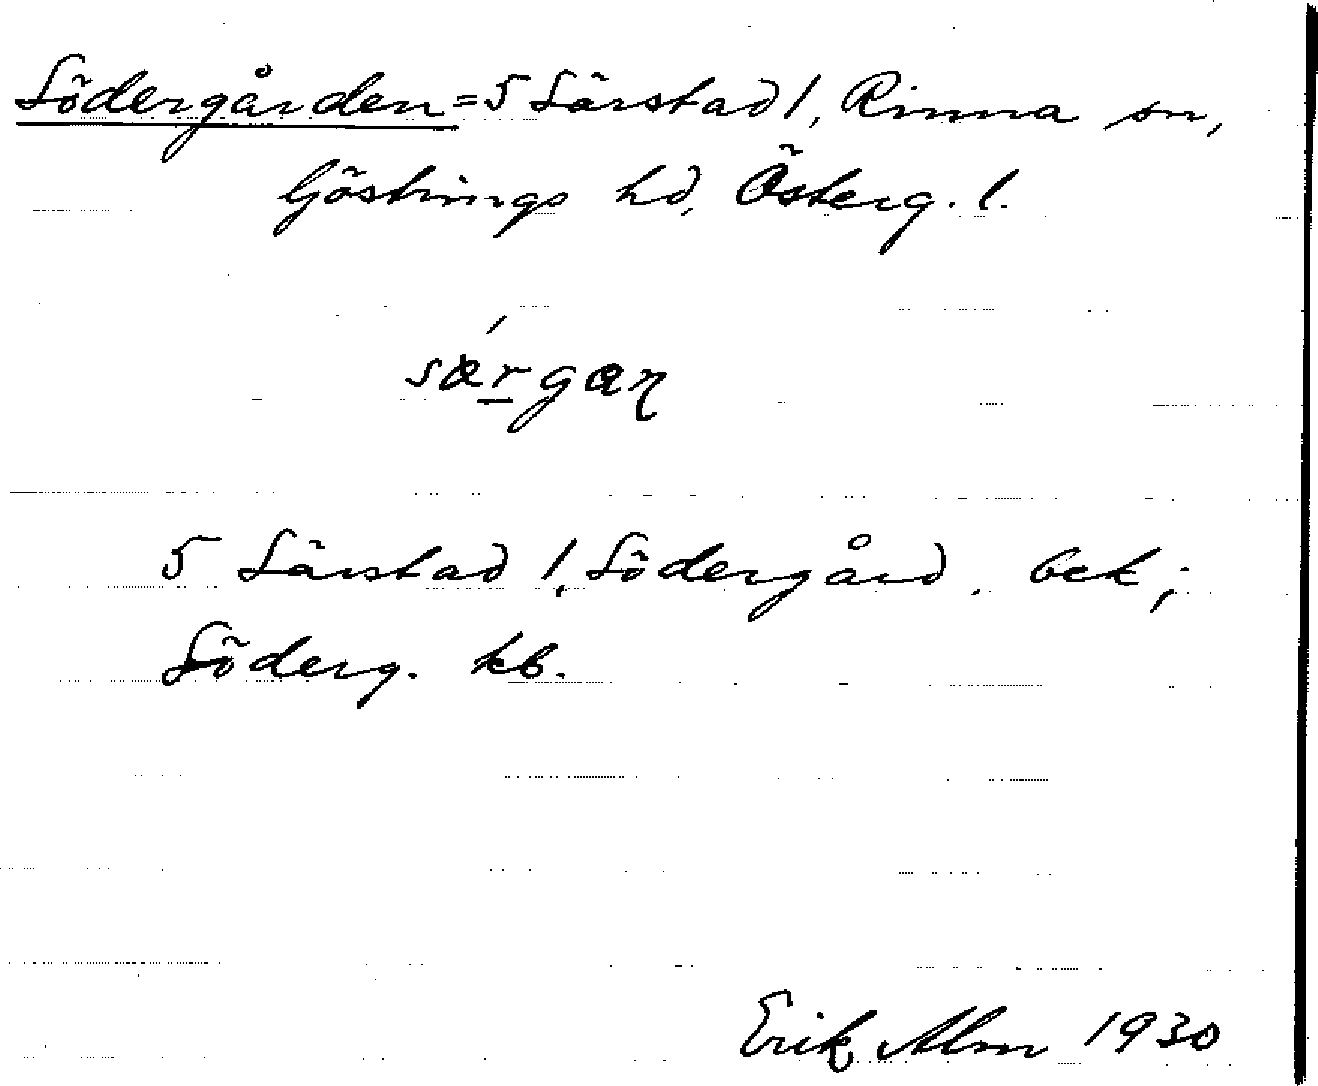 Södergården = 5 Särstad 1, Rinna sn,
Göstrings hd, Österg. l.
særgaɳ
5 Särstad 1, Södergård. bek;
Söderg. kb.
Erik Alm 1930